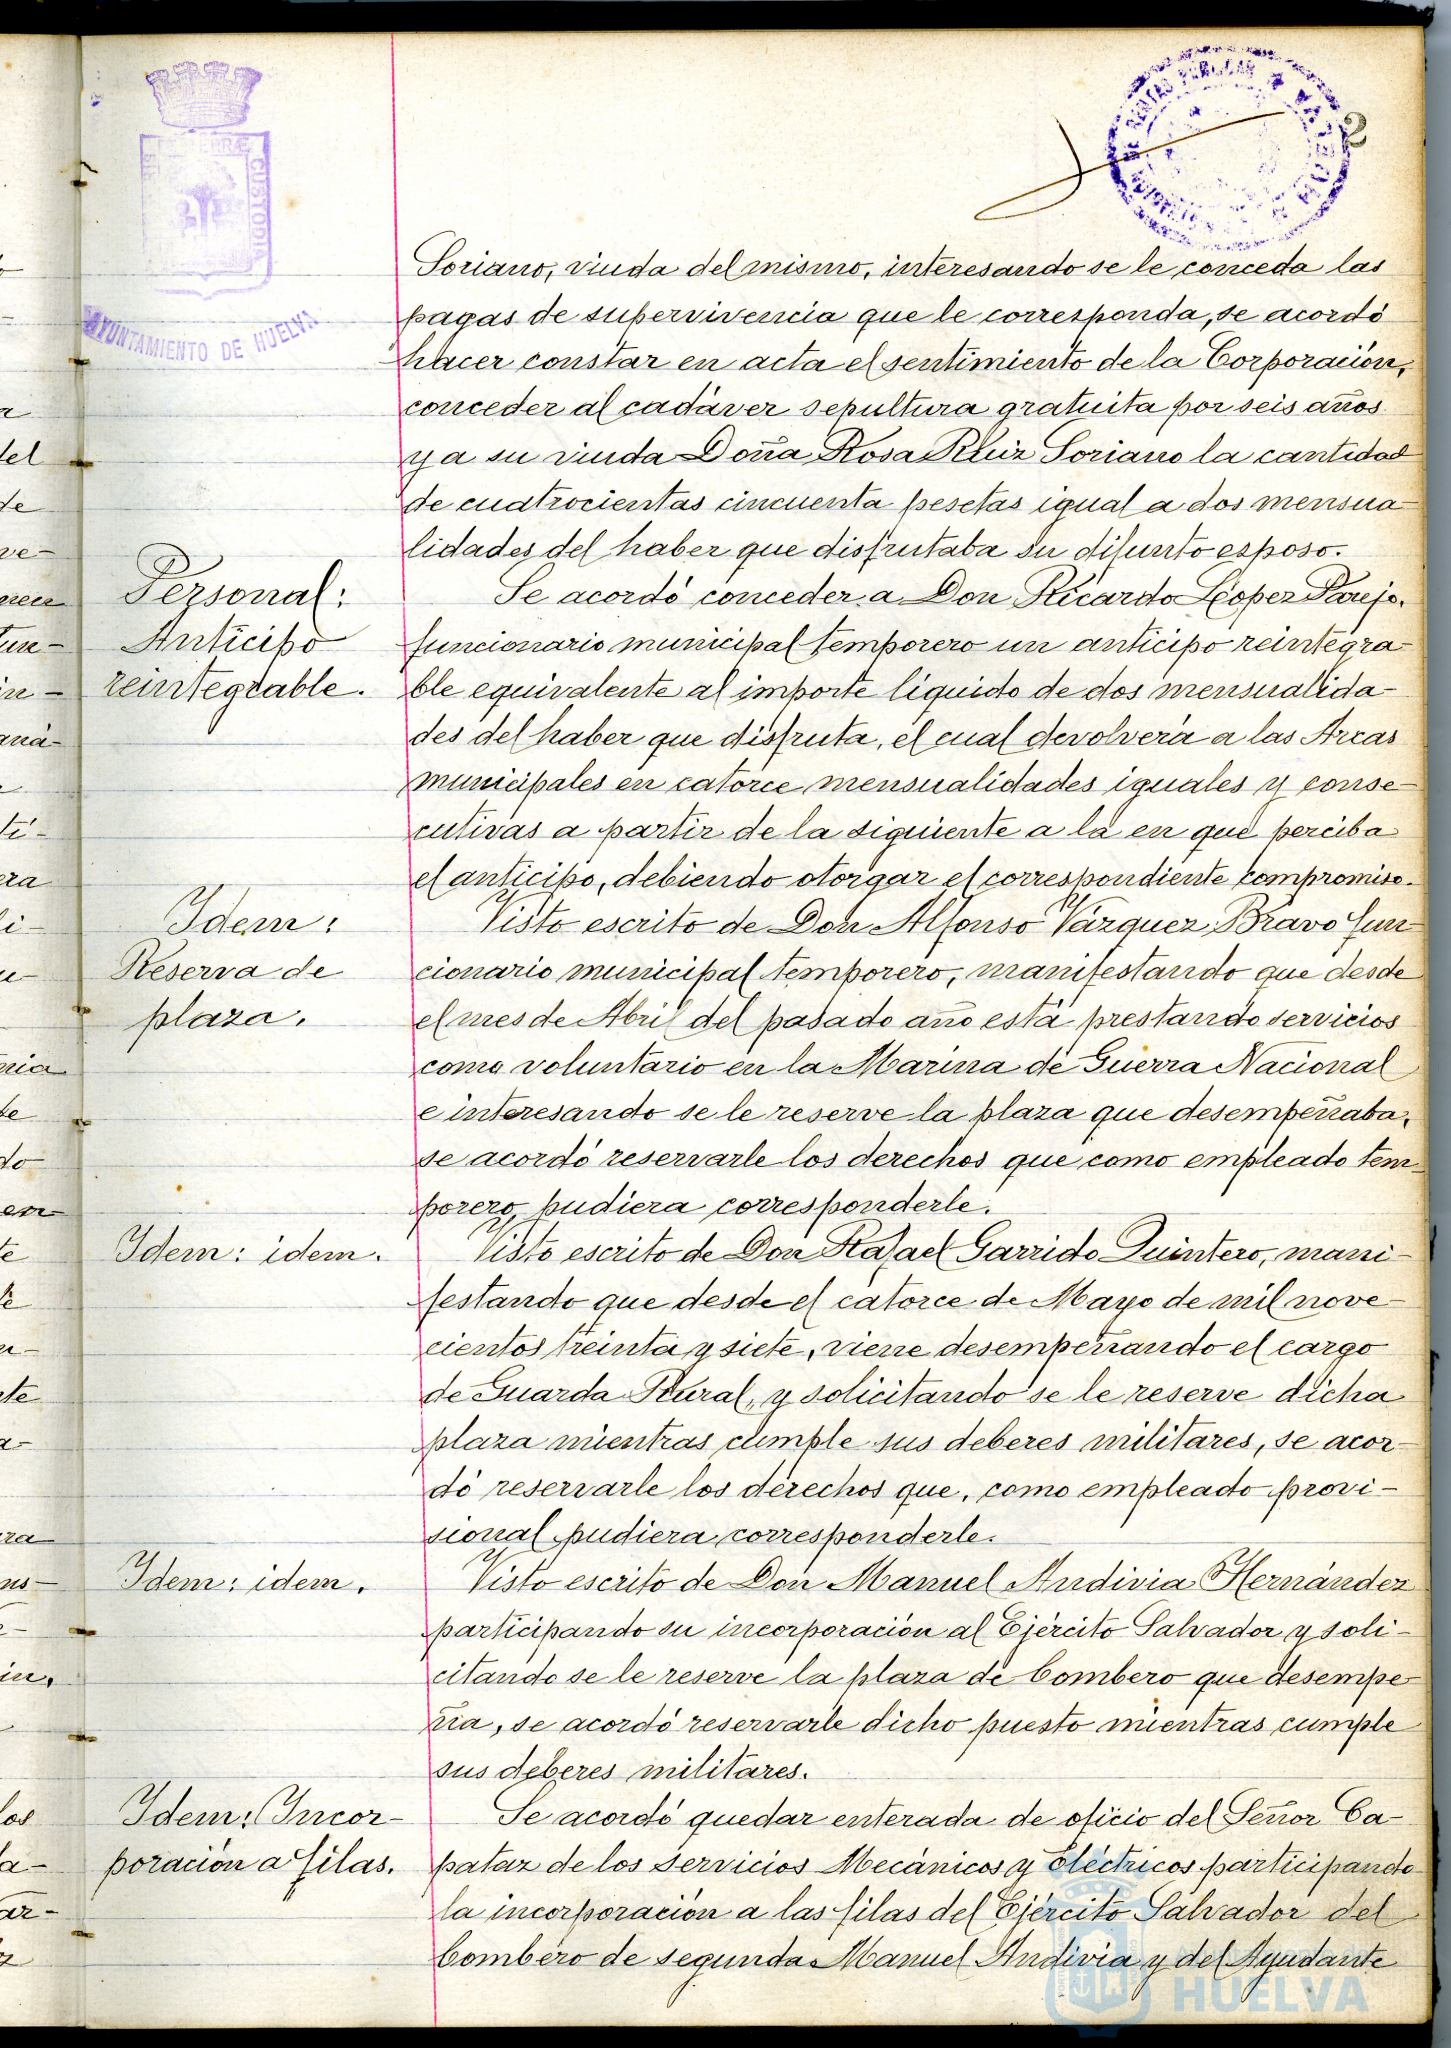 2
AYUNTAMIENTO DE HUELVA
Soriano, viuda del mismo, interesando se le conceda las
pagas de supervivencia que le corresponda, se acordó
hacer constar en acta el sentimiento de la Corporación,
conceder al cadáver sepultura gratuita por seis años
y a su viuda Doña Rosa Ruiz Soriano la cantidad
de cuatrocientas cincuenta pesetas igual a dos mensua-
lidades del haber que disfrutaba su difunto esposo.
Personal:
Anticipo
reintegrable.
Se acordó conceder a Don Ricardo López Parejo,
funcionario municipal temporero un anticipo reintegra-
ble equivalente al importe líquido de dos mensualida-
des del haber que disfruta, el cual devolverá a las Arcas
municipales en catorce mensualidades iguales y conse-
cutivas a partir de la siguiente a la en que perciba
el anticipo, debiendo otorgar el correspondiente compromiso.
Idem:
Reserva de
plaza.
Visto escrito de Don Alfonso Vázquez Bravo fun-
cionario municipal temporero, manifestando que desde
el mes de Abril del pasado año está prestando servicios
como voluntario en la Marina de Guerra Nacional
e interesando se le reserve la plaza que desempeñaba,
se acordó reservarle los derechos que como empleado tem-
porero pudiera corresponderle.
Idem: idem.
Visto escrito de Don Rafael Garrido Quintero, mani-
festando que desde el catorce de Mayo de mil nove-
cientos treinta y siete, viene desempeñando el cargo
de Guarda Rural, y solicitando se le reserve dicha
plaza mientras cumple sus deberes militares, se acor-
dó reservarle los derechos que, como empleado provi-
sional pudiera corresponderle.
Idem: idem.
Visto escrito de Don Manuel Andivia Hernández
participando su incorporación al Ejército Salvador y soli-
citando se le reserve la plaza de bombero que desempe-
ña, se acordó reservarle dicho puesto mientras cumple
sus deberes militares.
Idem: Incor-
poración a filas.
Se acordó quedar enterada de oficio del Señor Ca-
pataz de los servicios Mecánicos y Eléctricos participando
la incorporación a las filas del Ejército Salvador del
bombero de segunda Manuel Andivia y del Ayudante
HUELVA